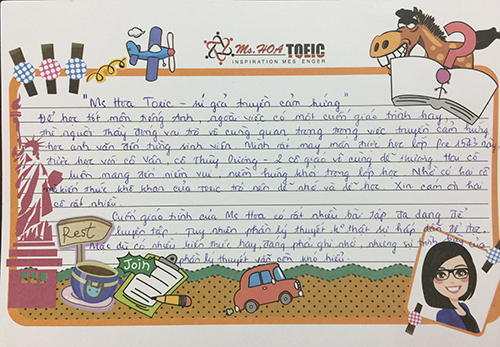 Ms. HOA TOEIC
INSPIRATION MESSENGER
"Ms Hoa Toeic - sứ giả truyền cảm hứng"
Để học tốt môn tiếng Anh, ngoài việc có một cuốn giáo trình hay,
thì người Thầy đóng vai trò vô cùng quan trọng trong việc truyền cảm hứng
học anh văn đến từng sinh viên. Mình rất may mắn được học lớp Pre
được học với cô Vân, cô Thùy Dương - 2 cô giáo vô cùng dễ thương. Hai cô
luôn mang đến niềm vui, niềm hứng khởi trong lớp học. Nhờ có hai cô
mà kiến thức khô khan của Toeic trở nên dễ nhớ và dễ học. Xin cảm ơn hai
cô rất nhiều.
Cuốn giáo trình của Ms Hoa có rất nhiều bài tập đa dạng để
luyện tập. Tuy nhiên phần lý thuyết k thật sự hấp dẫn để học.
Mặc dù có nhiều kiến thức hay, đáng phải ghi nhớ, nhưng sự trình bày của
phần lý thuyết vẫn còn khó hiểu.
Rest
Join